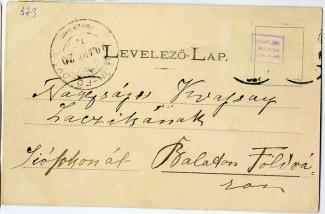 573.
LEVELEZŐ-LAP.
Nagyságos Kvassay
Laczikának
Siófokon át Balaton Földvá-
ron